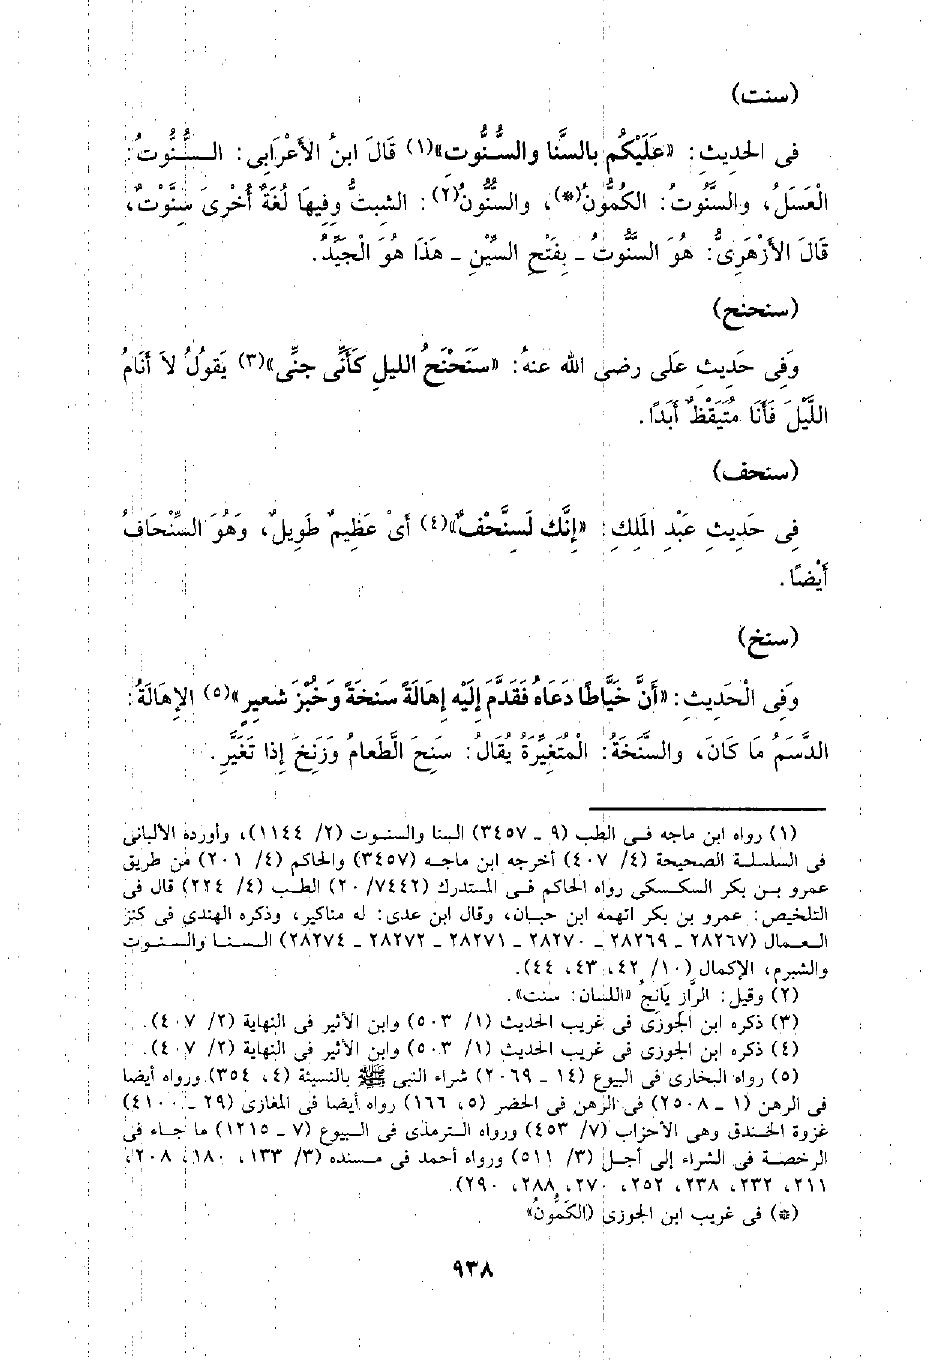 (سنت)
فى الحديث: «عَلَيْكُم بالسنَّا والسُّنُّوت»(١) قَالَ ابنُ الأَعْرَابى: السُّنُّوتُ:
الْعَسَلُ، والسَّنُوتُ: الكمُّونُ(*)، والسنُّونُ(٢): الشبتُّ وفِيهَا لُغَةٌ أُخْرىَ سِنَّوْتٌ،
قَالَ الأَزْهَرِىُّ: هُوَ السَنُّوتُ ـ بِفَتْحِ السِّيْنِ ـ هَذَا هُوَ الْجَيِّدُ.
(سنحنح)
وَفِى حَدِيثِ عَلَى رضى الله عنهُ: «سَنَحْنَحُ الليلِ كَأَنَّى جنِّى»(٣) يَقولُ لاَ أَنَامُ
اللَّيْلَ فَأَنَا مُتَيَقظٌ أَبَدًا.
(سنحف)
فِى حَديثِ عَبْدِ المَلِكِ: «إنَّك لَسِنَّحْفٌ»(٤) أَىْ عَظِيمٌ طَوِيلٌ، وَهُوَ السِّنْحَافُ
أَيْضًا.
(سنخ)
وَفِى الْحَدِيثِ: «أَنَّ خَيَّاطًا دَعَاهُ فَقَدَّمَ إِلَيْه إِهَالَةً سَنخَةً وَخُبْزَ شعيرٍ»(٥) الإِهَالَةُ:
الدَّسَمُ مَا كَانَ، والسَّنَخَةُ: الْمُتغَيِّرَةُ يقَالُ: سَنِخَ الطَّعَامُ وَزَنِخَ إِذَا تَغَيَّرَ.
(١) رواه ابن ماجه فى الطب (٩ ـ ٣٤٥٧) السنا والسنوت (٢/ ١١٤٤)، وأورده الألبانى
فى السلسلة الصحيحة (٤/ ٤٠٧) أخرجه ابن ماجه (٣٤٥٧) والحاكم (٤/ ٢٠١) من طريق
عمرو بن بكر السكسكى رواه الحاكم فى المستدرك (٢٠/٧٤٤٢) الطب (٤/ ٢٢٤) قال فى
التلخيص: عمرو بن بكر اتهمه ابن حبان، وقال ابن عدى: له مناكير، وذكره الهندي فى كنز
العمال (٢٨٢٦٧ ـ ٢٨٢٦٩ ـ ٢٨٢٧٠ ـ ٢٨٢٧١ ـ ٢٨٢٧٢ ـ ٢٨٢٧٤) السنا والسنوت
والشبرم، الإكمال (١٠/ ٤٢، ٤٣، ٤٤).
(٢) وقيل: الرَّاز يَانجُ «اللسان: سنت».
(٣) ذكره ابن الجوزى فى غريب الحديث (١/ ٥٠٣) وابن الأثير فى النهاية (٢/ ٤٠٧).
(٤) ذكره ابن الجوزى فى غريب الحديث (١/ ٥٠٣) وابن الأثير فى النهاية (٢/ ٤٠٧).
(٥) رواه البخارى فى البيوع (١٤ ـ ٢٠٦٩) شراء النبى ﷺ بالنسيئة (٤، ٣٥٤) ورواه أيضا
فى الرهن (١ ـ ٢٥٠٨) فى الرهن فى الحضر (٥، ١٦٦) رواه أيضا فى المغازى (٢٩ ـ ٤١٠٠)
غزوة الخندق وهى الأحزاب (٧/ ٤٥٣) ورواه الترمذى فى البيوع (٧ ـ ١٢١٥) ما جاء فى
الرخصة فى الشراء إلى أجل (٣/ ٥١١) ورواه أحمد فى مسنده (٣/ ١٣٣، ١٨٠، ٢٠٨،
٢١١، ٢٣٢، ٢٣٨، ٢٥٢، ٢٧٠، ٢٨٨، ٢٩٠).
(*) فى غريب ابن الجوزى (الكَمُّونُ»
٩٣٨